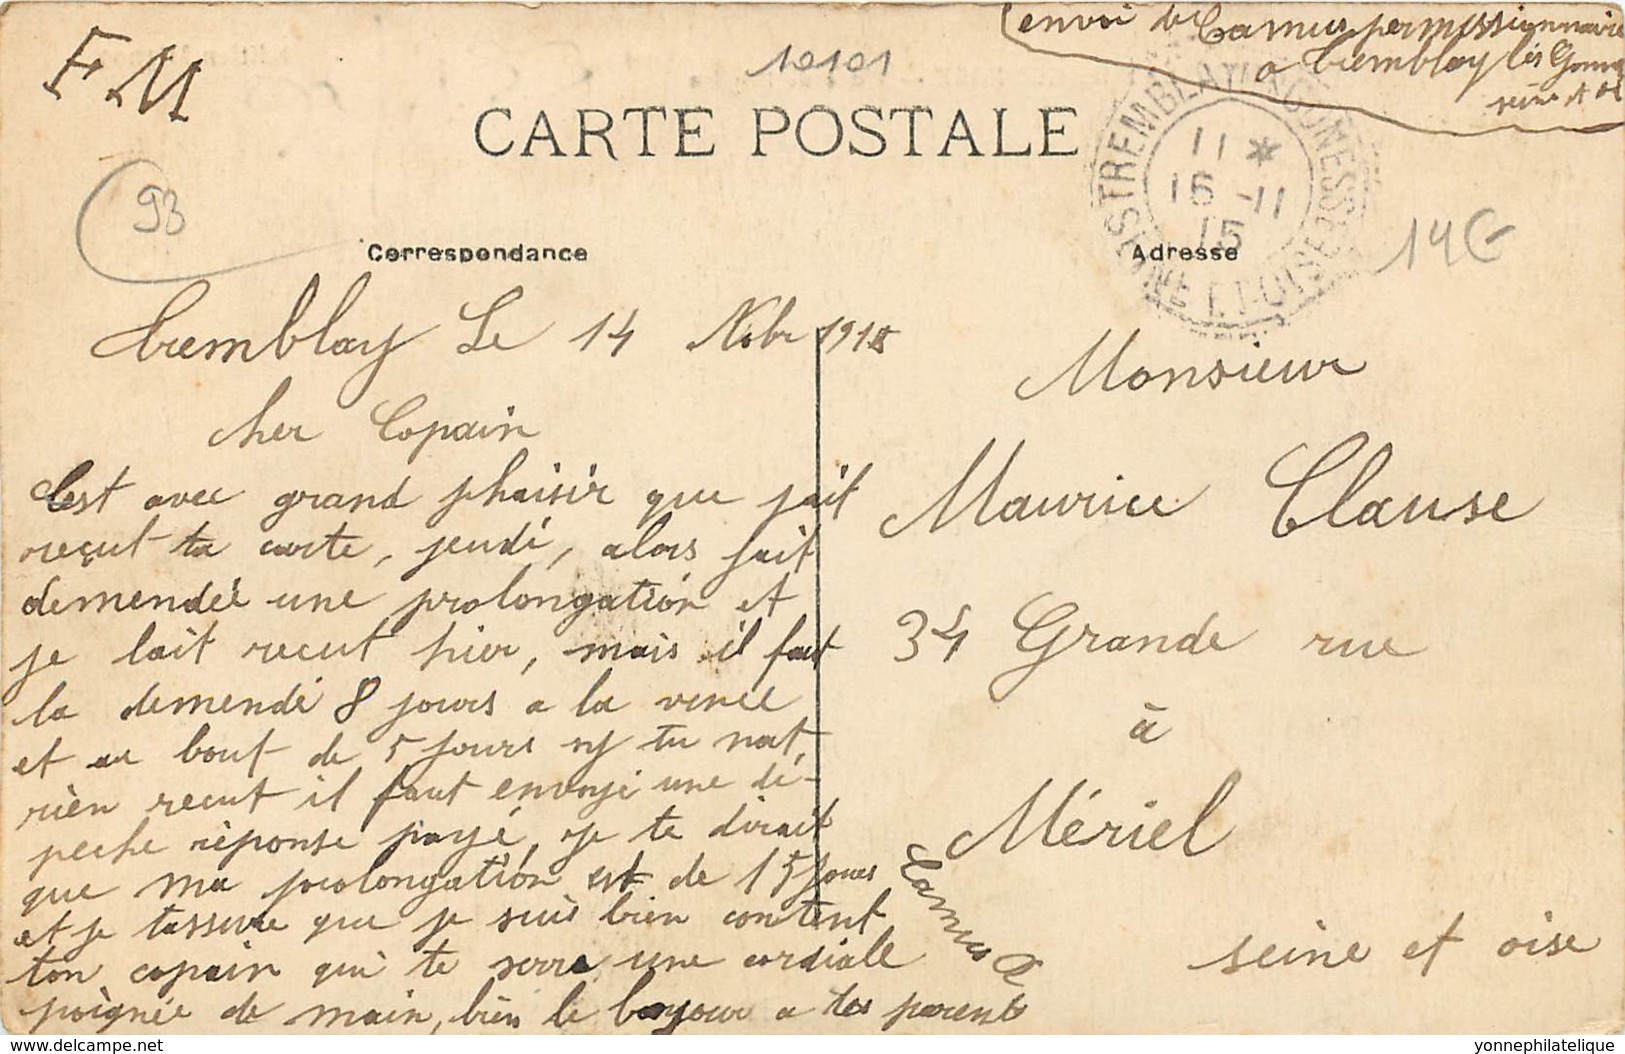 F M
envoi de Camus permissionnaire
a Tremblay les Gones
seine et O
10101
CARTE POSTALE
TREMBLAY-LES-GONESSE
SEINE-ET-OISE
11 *
16 -11
15
93
14G
Correspondance
Adresse
Tremblay Le 14 Nobr 1915
Cher Copain
C'est avec grand phaisir que jait
reçut ta carte, jeudi, alors jait
demendée une prolongation et
je lait recut hier, mais il faut
la demendé 8 jours a la vence
et au bout de 5 jours sy tu nat
rien recut il faut envoyé une dé-
peche réponse payé, je te dirait
que ma prolongation est de 15 jours
et je tassure que je suis bien content
ton copain qui te serre une cordiale
poignée de main, bien le bonjour a tes parents
Camus R
Monsieur
Maurice Clause
34 Grande rue
à
Mériel
seine et oise
www.delcampe.net
yonnephilatelique